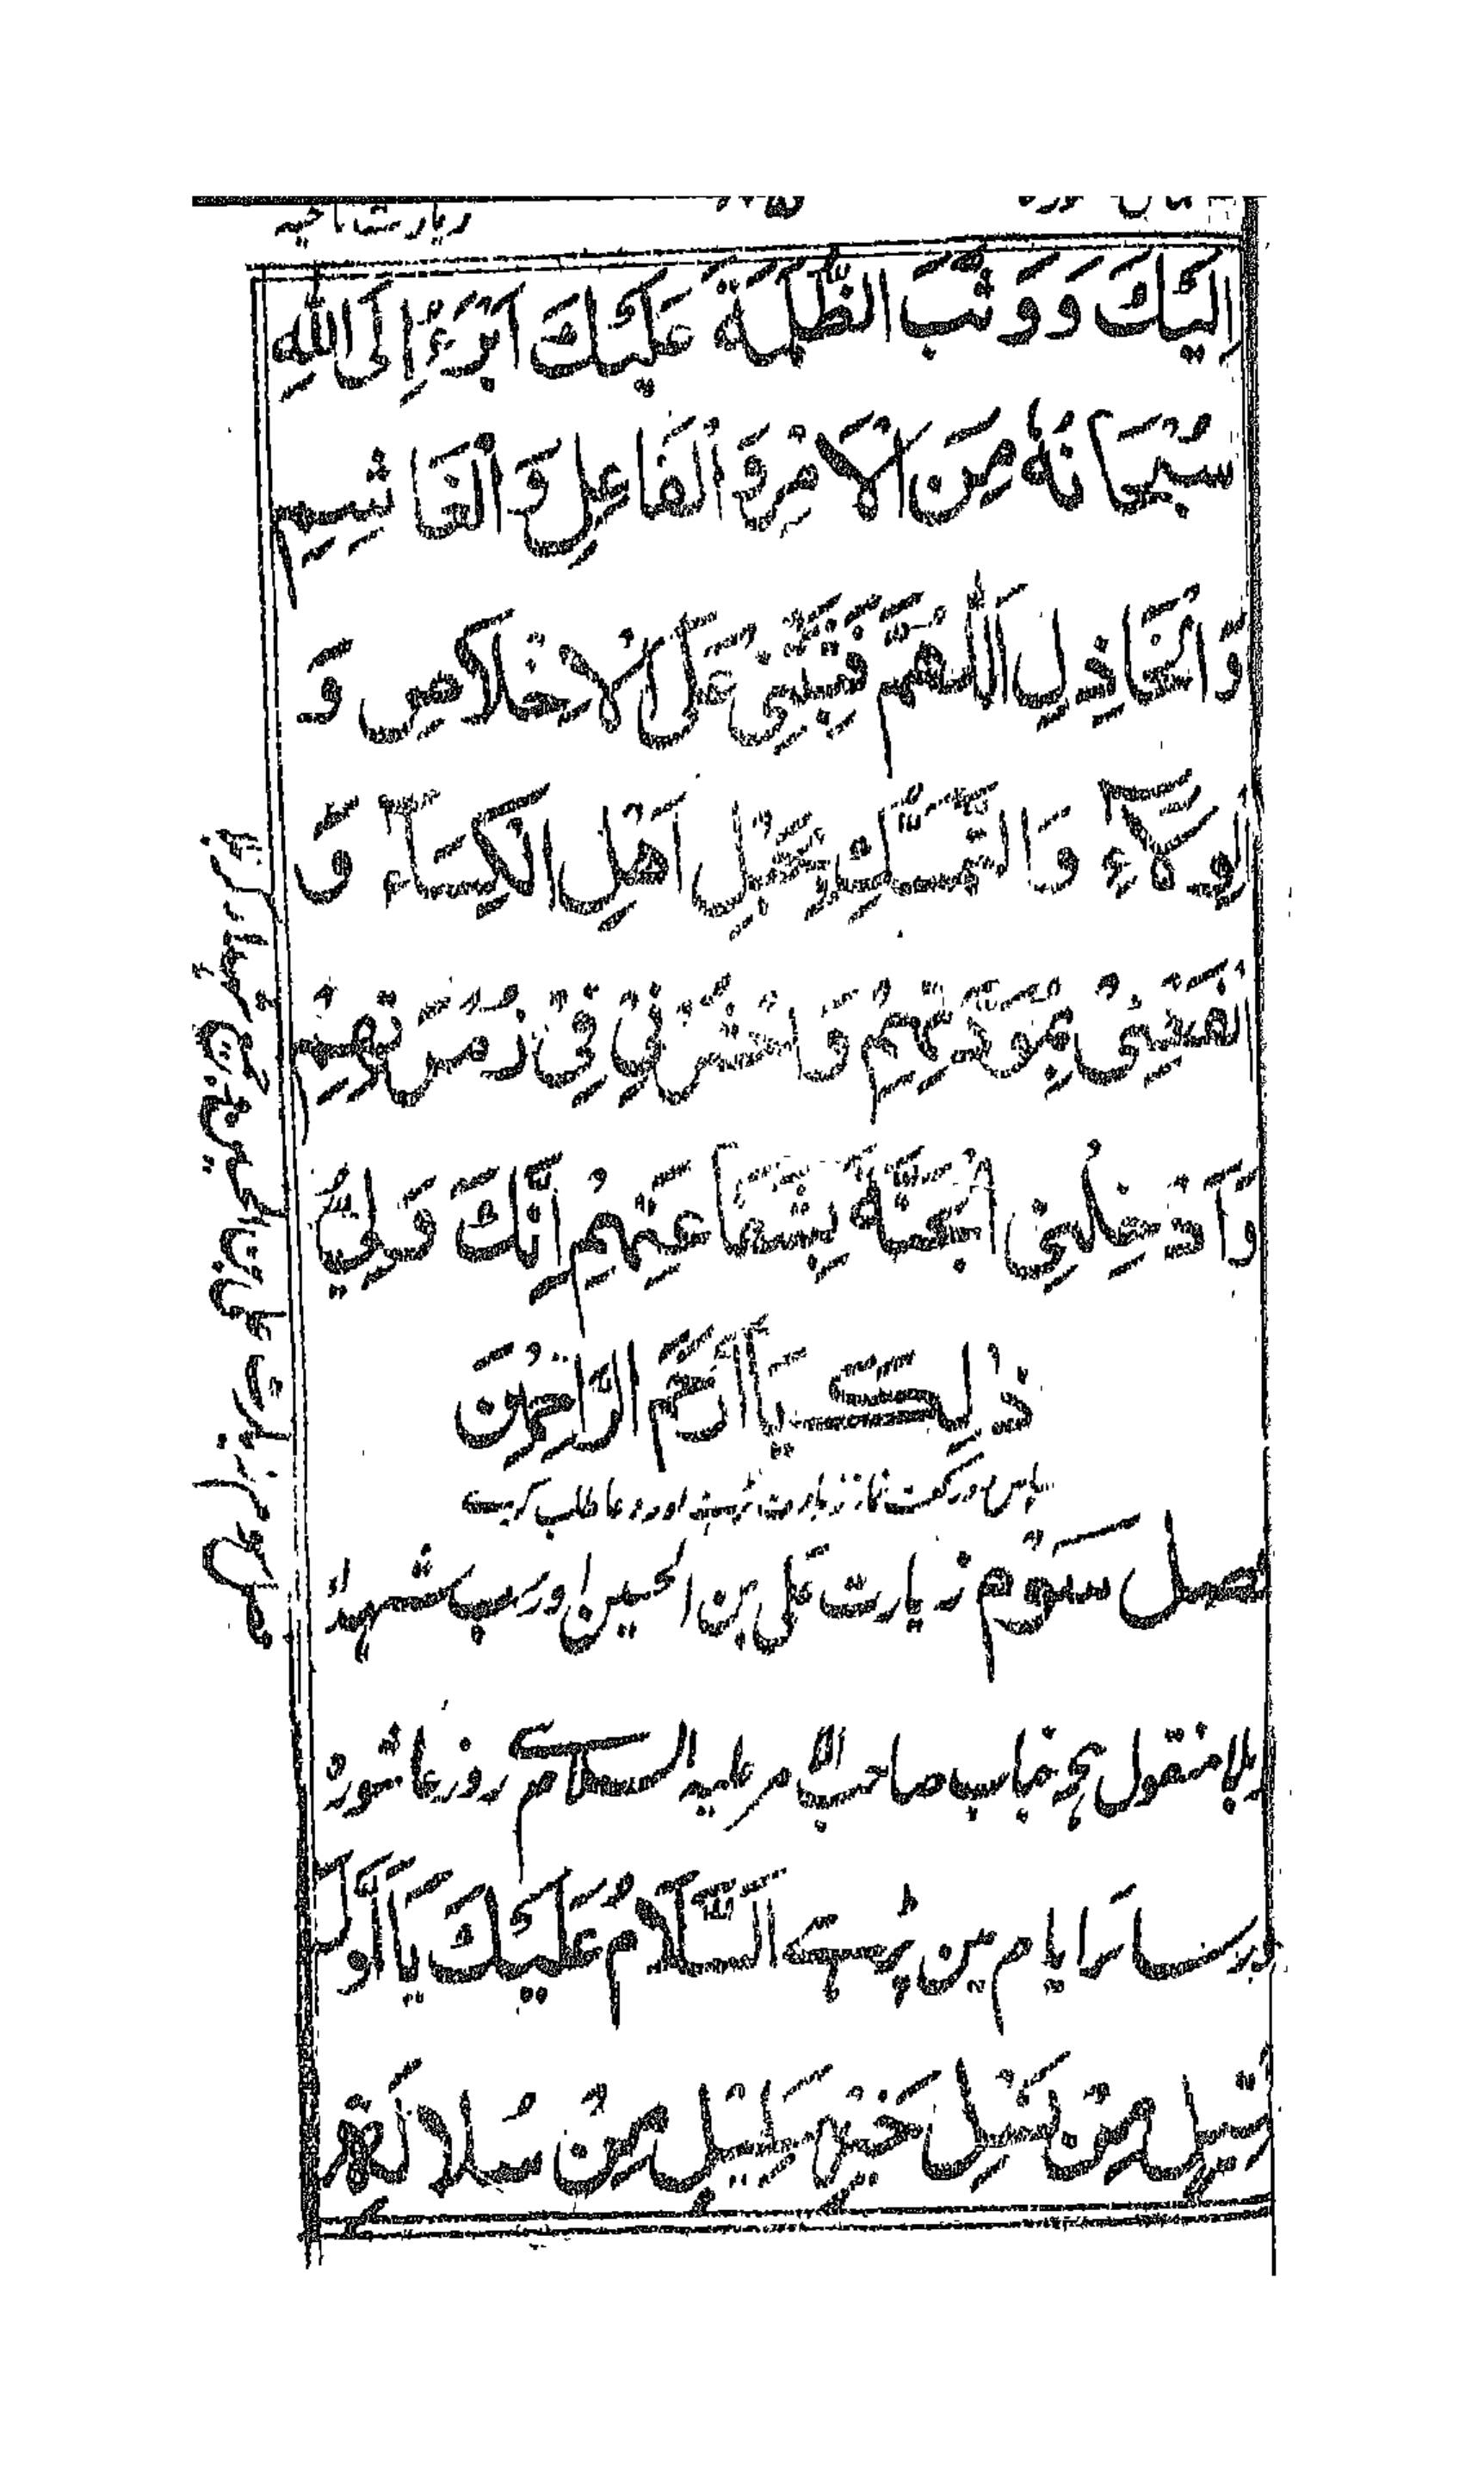 زیارت ناحیہ
اِلَيْكَ وَ وَثْبَ الظَّلَمَةِ عَلَيْكَ اَبْرَءُ اِلَى اللّٰهِ
سُبْحَانَهٗ مِنَ الْاٰمِرِ وَ الْفَاعِلِ وَ الْغَاشِمِ
وَ الْخَاذِلِ اَللّٰهُمَّ فَثَبِّتْنِيْ عَلَى الْاِخْلَاصِ وَ
الْوِلَآءِ وَ التَّمَسُّكِ بِحَبْلِ اَهْلِ الْكِسَآءِ وَ
انْفَعْنِيْ بِمَوَدَّتِهِمْ وَ احْشُرْنِيْ فِيْ زُمْرَتِهِمْ
وَ اَدْخِلْنِي الْجَنَّةَ بِشَفَاعَتِهِمْ اِنَّكَ وَلِيُّ
ذٰلِكَ يَا اَرْحَمَ الرَّاحِمِيْنَ
پاس دو رکعت نماز زیارت پڑہے اور دعا طلب کرے
فصل سوم زیارت علی بن الحسین اور سب شہداء
کربلا منقول ہی جناب صاحب الامر علیہ السلام سے روز عاشورہ
اور سائر ایام مین پڑہے اَلسَّلَامُ عَلَيْكَ يَا اَوَّلَ
قَتِيْلٍ مِنْ نَسْلِ خَيْرِ سَلِيْلٍ مِنْ سُلَالَةِ